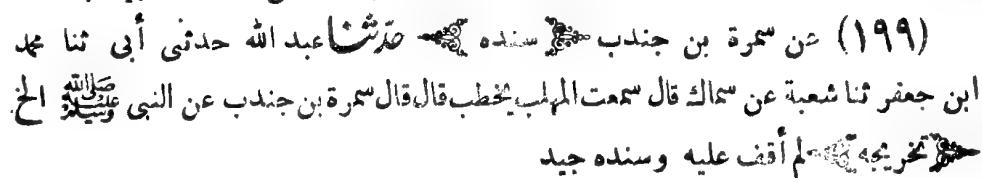 (١٩٩) عن سمرة بن جندب ﴿سنده﴾ حدثنا عبد الله حدثنى أبى ثنا محمد
ابن جعفر ثنا شعبة عن سماك قال سمعت المهلب يخطب قال قال سمرة بن جندب عن النبى ﷺ الخ
﴿تخريجه﴾ لم أقف عليه وسنده جيد